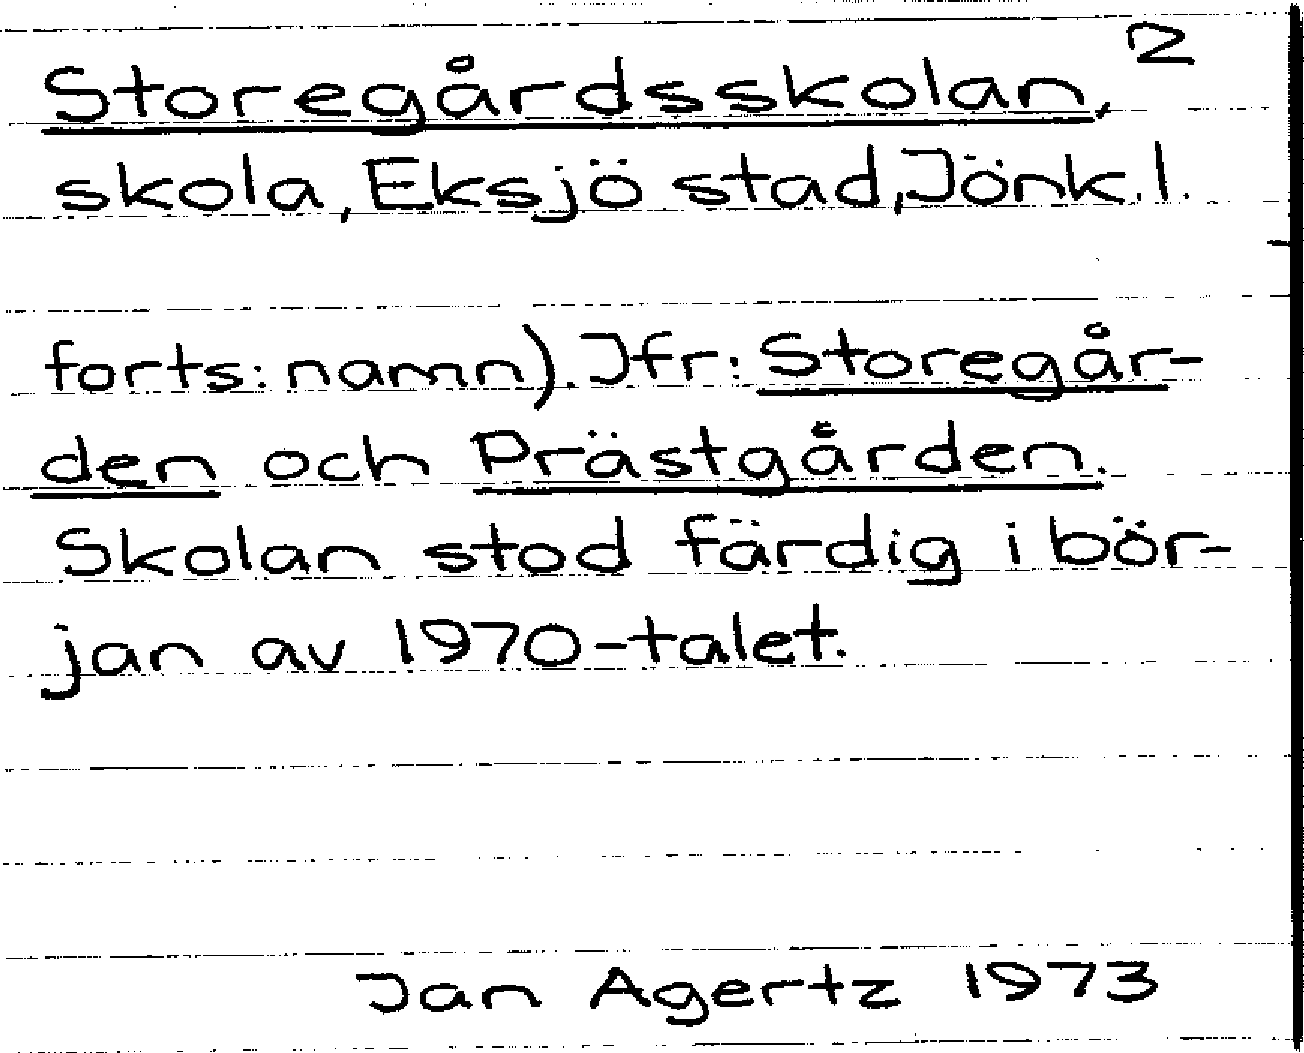 2
Storegårdsskolan,
skola, Eksjö stad, Jönk.l.
forts: namn). Jfr: Storegår-
den och Prästgården.
Skolan stod färdig i bör-
jan av 1970-talet.
Jan Agertz 1973